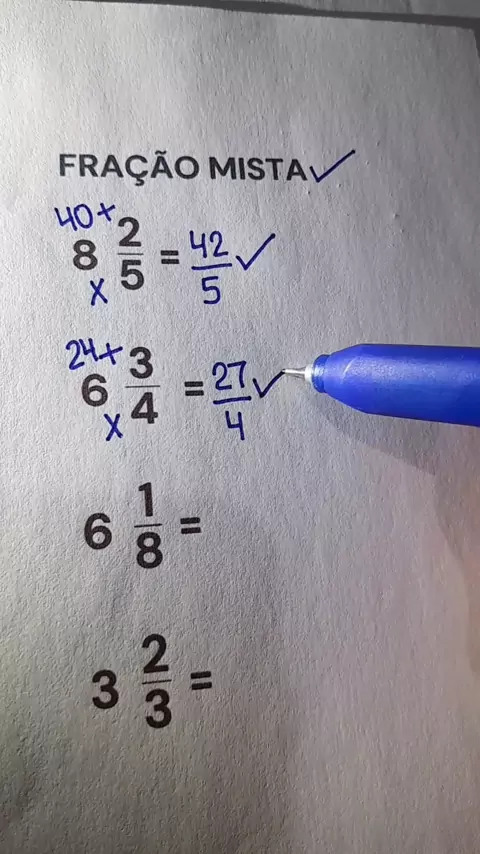 FRAÇÃO MISTA ✓
40+
8 2/5 = 42/5 ✓
x
24+
6 3/4 = 27/4 ✓
x
6 1/8 =
3 2/3 =